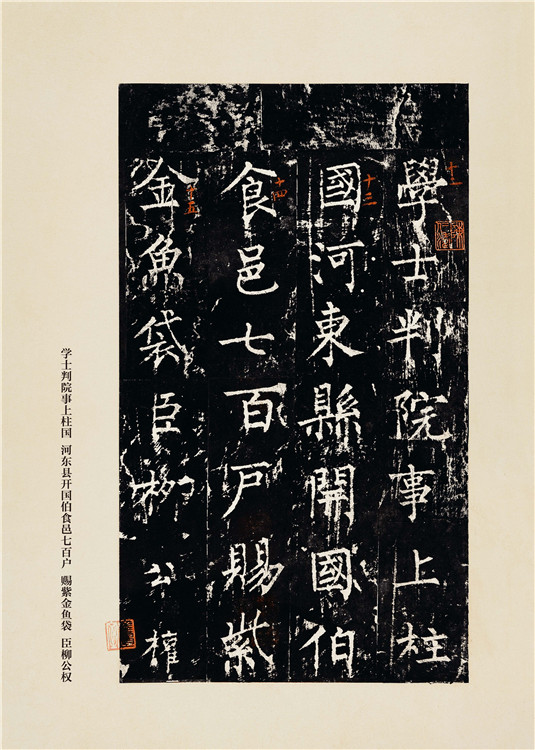 學士判院事上柱
國河東縣開國伯
食邑七百戶賜紫
金魚袋臣柳公權
十三
十四
十五
学士判院事上柱国 河东县开国伯食邑七百户 赐紫金鱼袋 臣柳公权